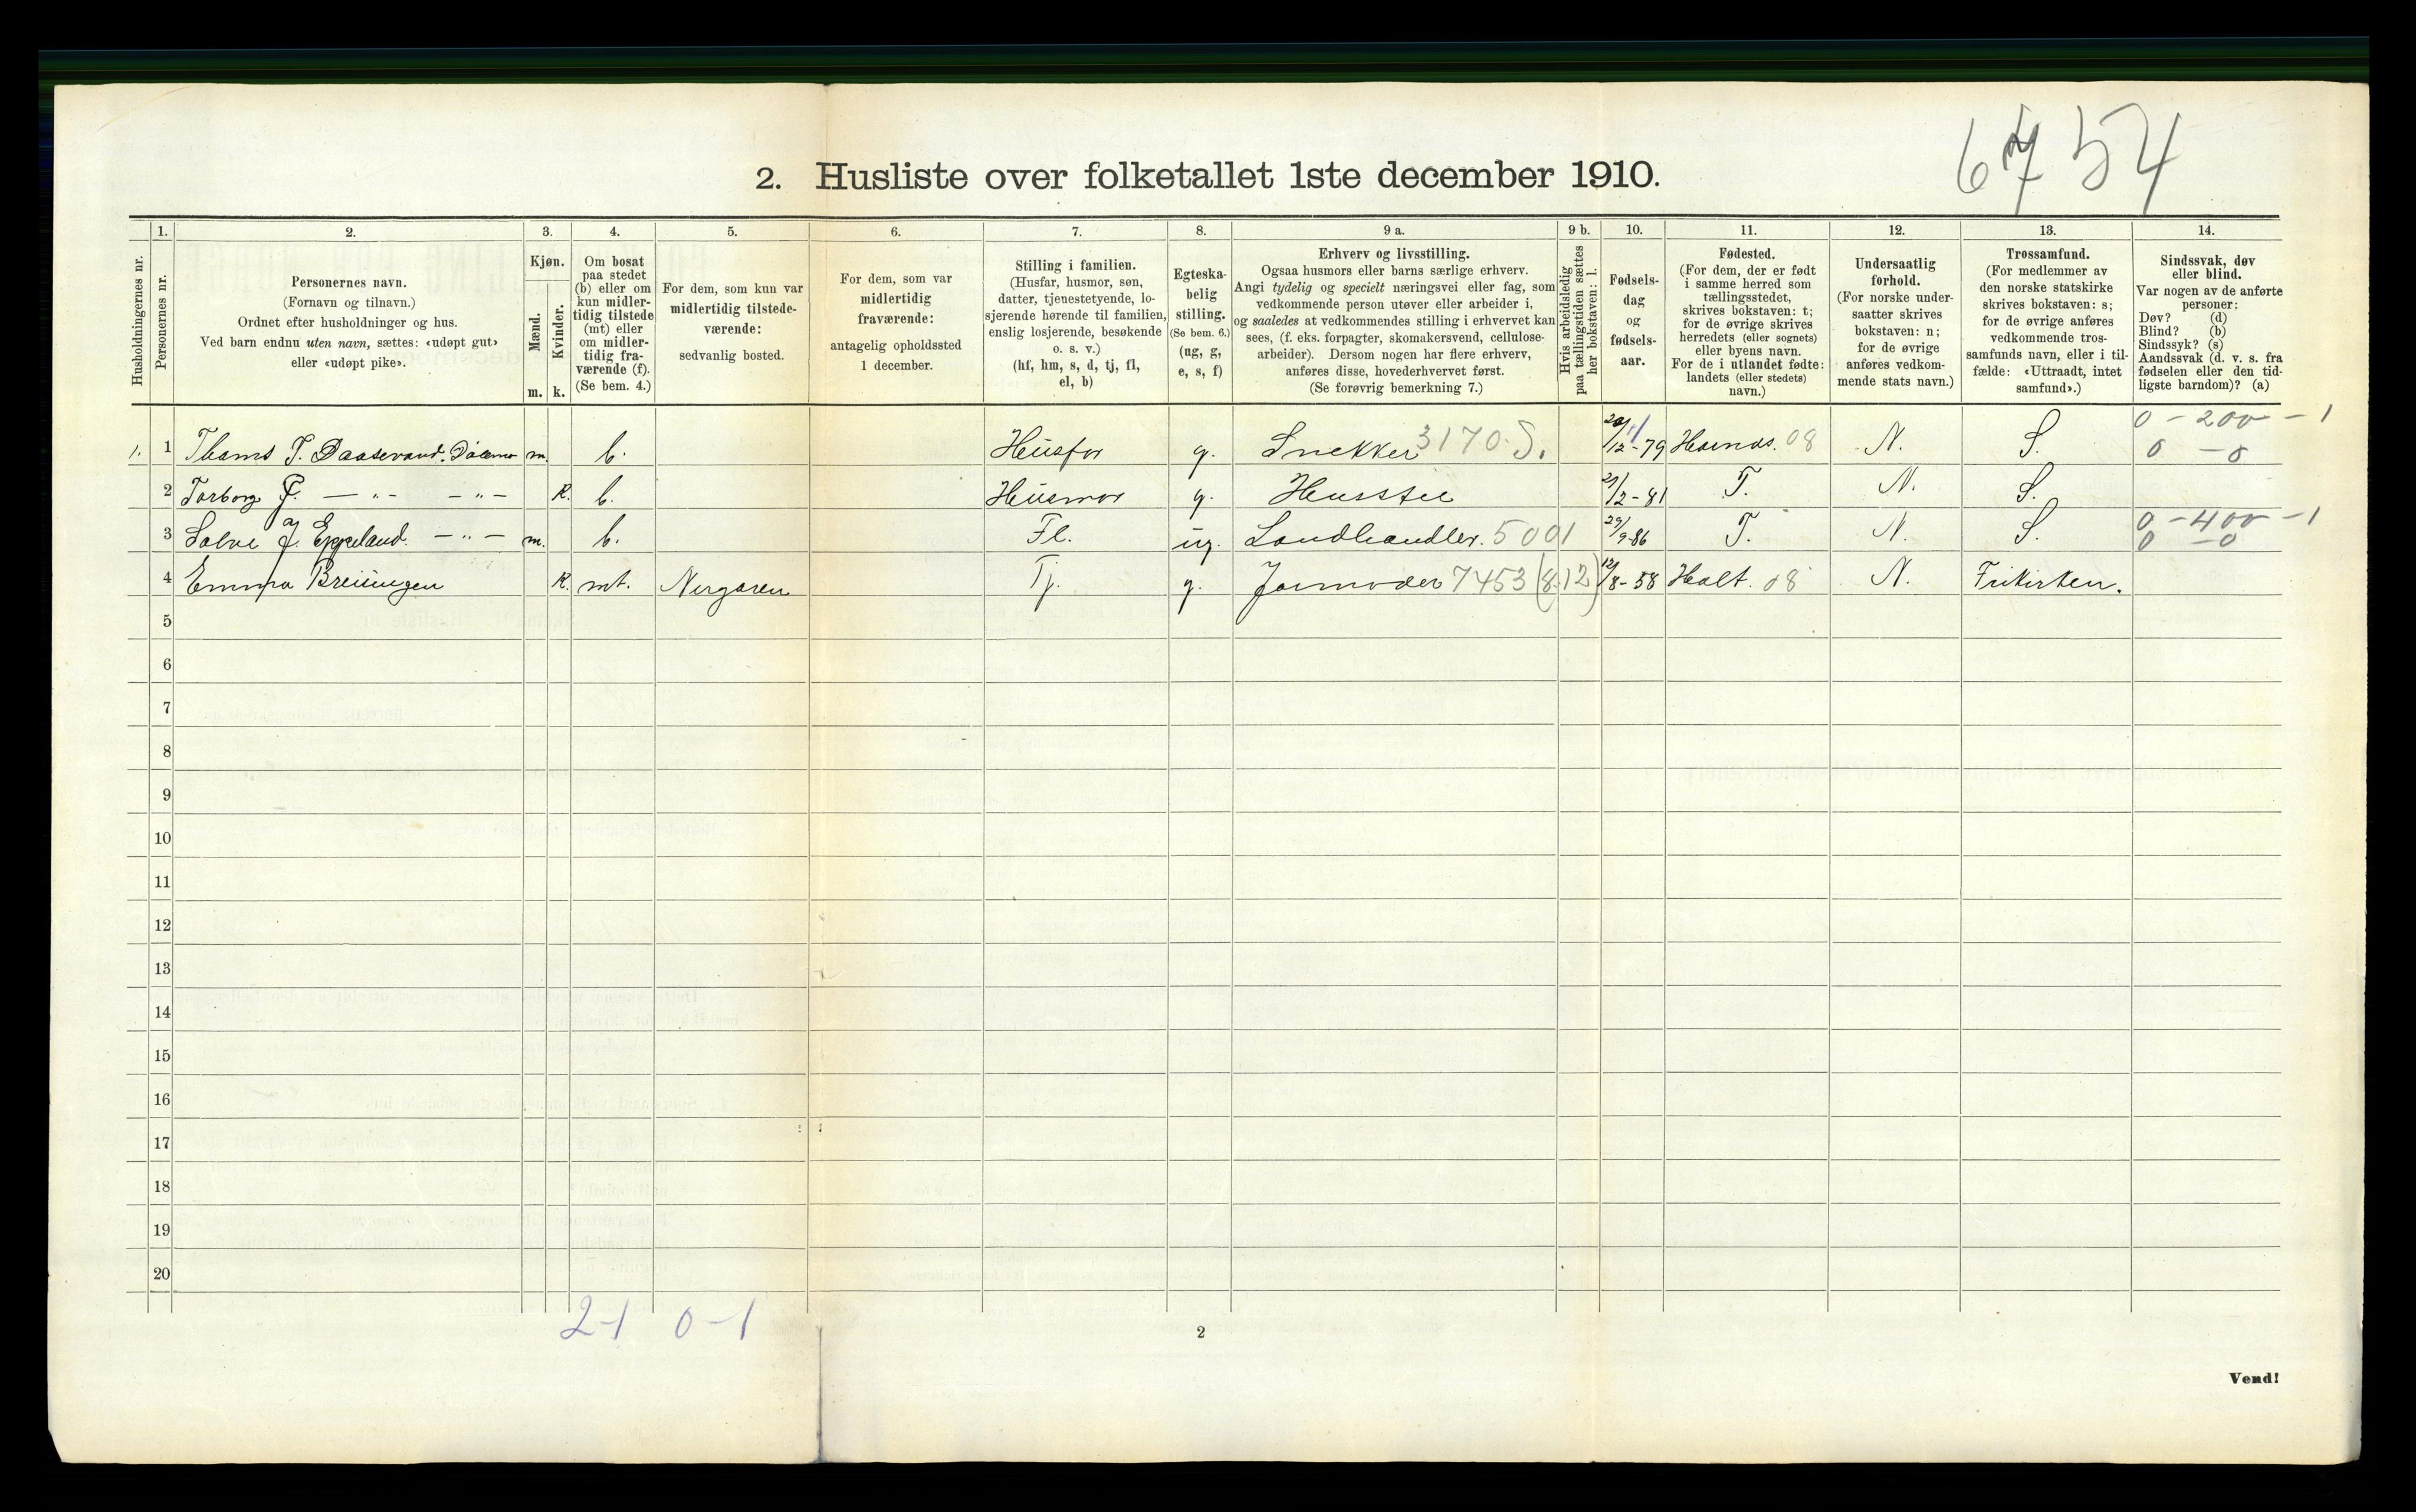 6754
2. Husliste over folketallet 1ste december 1910.
1. 2. 3. 4. 5. 6. 7. 8. 9 a. 9 b. 10. 11. 12. 13. 14.
Husholdningernes nr.
Personernes nr.
Personernes navn.
(Fornavn og tilnavn.)
Ordnet efter husholdninger og hus.
Ved barn endnu uten navn, sættes: «udøpt gut»
eller «udøpt pike».
Kjøn.
Mænd.
Kvinder.
m. k.
Om bosat
paa stedet
(b) eller om
kun midler-
tidig tilstede
(mt) eller
om midler-
tidig fra-
værende (f).
(Se bem. 4.)
For dem, som kun var
midlertidig tilstede-
værende:
sedvanlig bosted.
For dem, som var
midlertidig
fraværende:
antagelig opholdssted
1 december.
Stilling i familien.
(Husfar, husmor, søn,
datter, tjenestetyende, lo-
sjerende hørende til familien,
enslig losjerende, besøkende
o. s. v.)
(hf, hm, s, d, tj, fl,
el, b)
Egteska-
belig
stilling.
(Se bem. 6.)
(ug, g,
e, s, f)
Erhverv og livsstilling.
Ogsaa husmors eller barns særlige erhverv.
Angi tydelig og specielt næringsvei eller fag, som
vedkommende person utøver eller arbeider i,
og saaledes at vedkommendes stilling i erhvervet kan
sees, (f. eks. forpagter, skomakersvend, cellulose-
arbeider). Dersom nogen har flere erhverv,
anføres disse, hovederhvervet først.
(Se forøvrig bemerkning 7.)
Hvis arbeidsledig
paa tællingstiden sættes
her bokstaven: l.
Fødsels-
dag
og
fødsels-
aar.
Fødested.
(For dem, der er født
i samme herred som
tællingsstedet,
skrives bokstaven: t;
for de øvrige skrives
herredets (eller sognets)
eller byens navn.
For de i utlandet fødte:
landets (eller stedets)
navn.)
Undersaatlig
forhold.
(For norske under-
saatter skrives
bokstaven: n;
for de øvrige
anføres vedkom-
mende stats navn.)
Trossamfund.
(For medlemmer av
den norske statskirke
skrives bokstaven: s;
for de øvrige anføres
vedkommende tros-
samfunds navn, eller i til-
fælde: «Uttraadt, intet
samfund».)
Sindssvak, døv
eller blind.
Var nogen av de anførte
personer:
Døv? (d)
Blind? (b)
Sindssyk? (s)
Aandssvak (d. v. s. fra
fødselen eller den tid-
ligste barndom)? (a)
0 - 200 - 1
1. 1 m. b. Husfar g. Snekker 3170 S. /12-79 08 N. S. 0 - 0
2 Torborg — " — — " — K. b. Husmor g. Husstel 21/2-81 T. N. S.
0 - 400 - 1
3 Salve J. Eppeland — " — m. b. Fl. ug. Landhandler. 5001 29/9-86 T. N. S. 0 - 0
4 Emma K. mt. Nergaren Tj. g. Jormoder 7453 (8.12) /8-58 Holt. 08 N. Frikirken.
5
6
7
8
9
10
11
12
13
14
15
16
17
18
19
20
2-1 0-1
2
Vend!